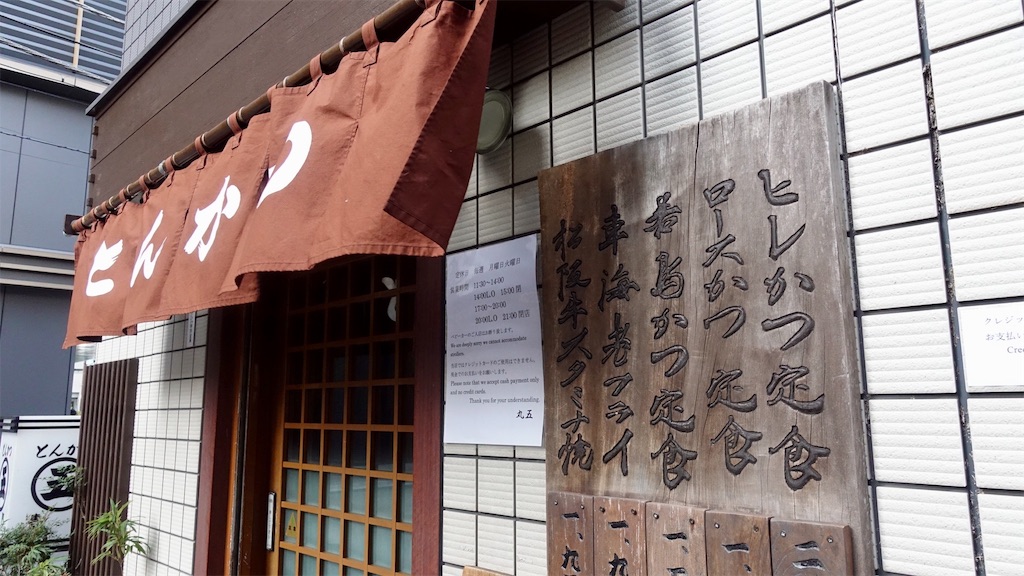 とんかつ
ヒレかつ定食
ロースかつ定食
若鳥かつ定食
車海老フライ
松阪牛スタミナ焼
定休日 毎週 月曜日火曜日
営業時間 11:30〜14:00
14:00L.O 15:00閉
17:00〜20:00
20:00L.O 21:00閉店
ベビーカーのご入店はお断り致します。
We are deeply sorry we cannot accommodate
strollers.
当店ではクレジットカードのご使用はできません。
現金でのお支払いをお願いします。
Please note that we accept cash payment only
and no credit cards.
Thank you for your understanding.
丸五
クレジッ
お支払い
Cre
とんか
五
一、九
一、九
一、
一、
二